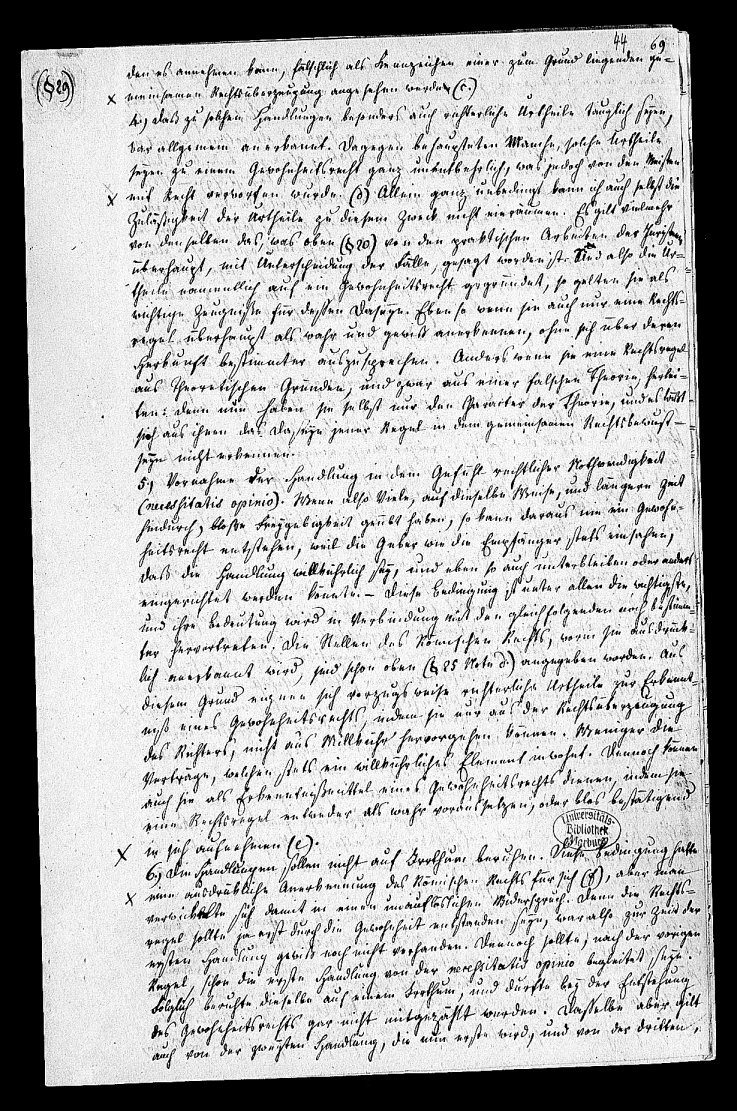 44 69
(§29)
den es annehmen kann, fälschlich als Kennzeichen einer zum Grund liegenden ge-
meinsamen Rechtsüberzeugung angesehen werden (c.)
4.) Daß zu solchen Handlungen besonders auch richterliche Urtheile tauglich seyen,
war allgemein anerkannt. Dagegen behaupteten Manche, solche Urtheile
seyen zu einem Gewohnheitsrecht ganz unentbehrlich, was jedoch von den Meisten
mit Recht verworfen wurde. (d) Allein ganz unbedingt kann ich auch selbst die
Zulässigkeit der Urtheile zu diesem Zweck nicht einräumen. Es gilt vielmehr
von denselben das, was oben (§ 20) von den praktischen Arbeiten der Juristen
überhaupt, mit Unterscheidung der Fälle, gesagt worden ist. Sind also die Ur-
theile namentlich auf ein Gewohnheitsrecht gegründet, so gelten sie als
wichtige Zeugnisse für dessen Daseyn. Eben so wenn sie auch nur eine Rechts-
regel überhaupt als wahr und gewiß anerkennen, ohne sich über deren
Herkunft bestimmter auszusprechen. Anders wenn sie eine Rechtsregel
aus theoretischen Gründen, und zwar aus einer falschen Theorie, herlei-
ten: denn nun haben sie selbst nur den Character der Theorie, und es läßt
sich aus ihnen das Daseyn jener Regel in dem gemeinsamen Rechtsbewußt-
seyn nicht erkennen.
5.) Vornahme der Handlung in dem Gefühl rechtlicher Nothwendigkeit
(necessitatis opinio). Wenn also Viele, auf dieselbe Weise, und längere Zeit
hindurch, bloße Freygebigkeit geübt haben, so kann daraus nie ein Gewohn-
heitsrecht entstehen, weil die Geber wie die Empfänger stets einsahen,
daß die Handlung willkührlich sey, und eben so auch unterbleiben oder anders
eingerichtet werden könnte. – Diese Bedingung ist unter allen die wichtigste,
und ihre Bedeutung wird in Verbindung mit den gleichfolgenden noch bestimm-
ter hervortreten. Die Stellen des Römischen Rechts, worin sie ausdrück-
lich anerkannt wird, sind schon oben (§ 25 Note d.) angegeben worden. Aus
diesem Grund eignen sich vorzugsweise richterliche Urtheile zur Erkennt-
niß eines Gewohnheitsrechts, indem sie nur aus der Rechtsüberzeugung
des Richters, nicht aus Willkühr hervorgehen können. Weniger die
Verträge, welchen stets ein willkührliches Element inwohnt. Dennoch können
auch sie als Erkenntnißmittel eines Gewohnheitsrechts dienen, indem sie
eine Rechtsregel entweder als wahr voraussetzen, oder blos bestätigend
in sich aufnehmen (e).
Universitäts-
Bibliothek
Marburg
6.) Die Handlungen sollen nicht auf Irrthum beruhen. Diese Bedingung hatte
eine ausdrückliche Anerkennung des Römischen Rechts für sich (f), aber man
verwickelte sich damit in einen unauflöslichen Widerspruch. Denn die Rechts-
regel sollte ja erst durch die Gewohnheit entstanden seyn, war also zur Zeit der
ersten Handlung gewiß noch nicht vorhanden. Dennoch sollte, nach der vorigen
Regel, schon die erste Handlung von der necessitatis opinio begleitet seyn.
Folglich beruhte dieselbe auf einem Irrthum, und dürfte bey der Entstehung
des Gewohnheitsrechts gar nicht mitgezählt werden. Dasselbe aber gilt
auch von der zweyten Handlung, die nun erste wird, und von der dritten,